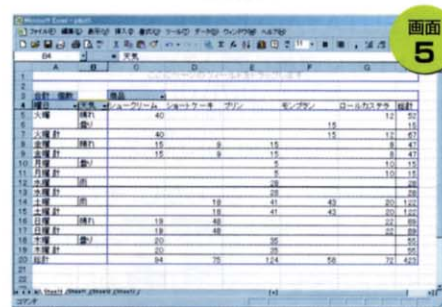 画面
5
Microsoft Excel
ファイル(F) 編集(E) 表示(V) 挿入(I) 書式(O) ツール(T) データ(D) ウィンドウ(W) ヘルプ(H)
B4 天気
A B C D E F G
1
2
3 合計 個数 商品
4 曜日 天気 シュークリーム ショートケーキ プリン モンブラン ロールカステラ 総計
5 火曜 晴れ 40 12 52
6 曇り 15 15
7 火曜 計 40 15 12 67
8 金曜 晴れ 15 9 15 8 47
9 金曜 計 15 9 15 8 47
10 月曜 曇り 5 10 15
11 月曜 計 5 10 15
12 水曜 雨 28 28
13 水曜 計 28 28
14 土曜 雨 18 41 43 20 122
15 土曜 計 18 41 43 20 122
16 日曜 晴れ 19 48 22 89
17 日曜 計 19 48 22 89
18 木曜 曇り 20 35 55
19 木曜 計 20 35 55
20 総計 94 75 124 58 72 423
21
22
コマンド